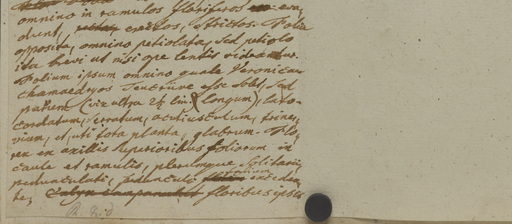 omnino in ramulos floriferos eva
dunt, erectos, strictos. Folia
opposita, omnino petiolata, sed petiolo
ita brevi ut nisi ope lentis videantur.
Folium ipsum omnino quale Veronicae
chamaedryos Teucriive esse solet, sed
parvum (vix ultra 2½ lin. longum), lato-
cordatum, serratum, acutiusculum, triner-
vium, et, uti tota planta, glabrum. Flo-
res ex axillis superioribus foliorum in
caule et ramulis, plerumque solitarii,
pedunculati, pedunculo folium exceden
te, Calyx campanulat floribus ipsis